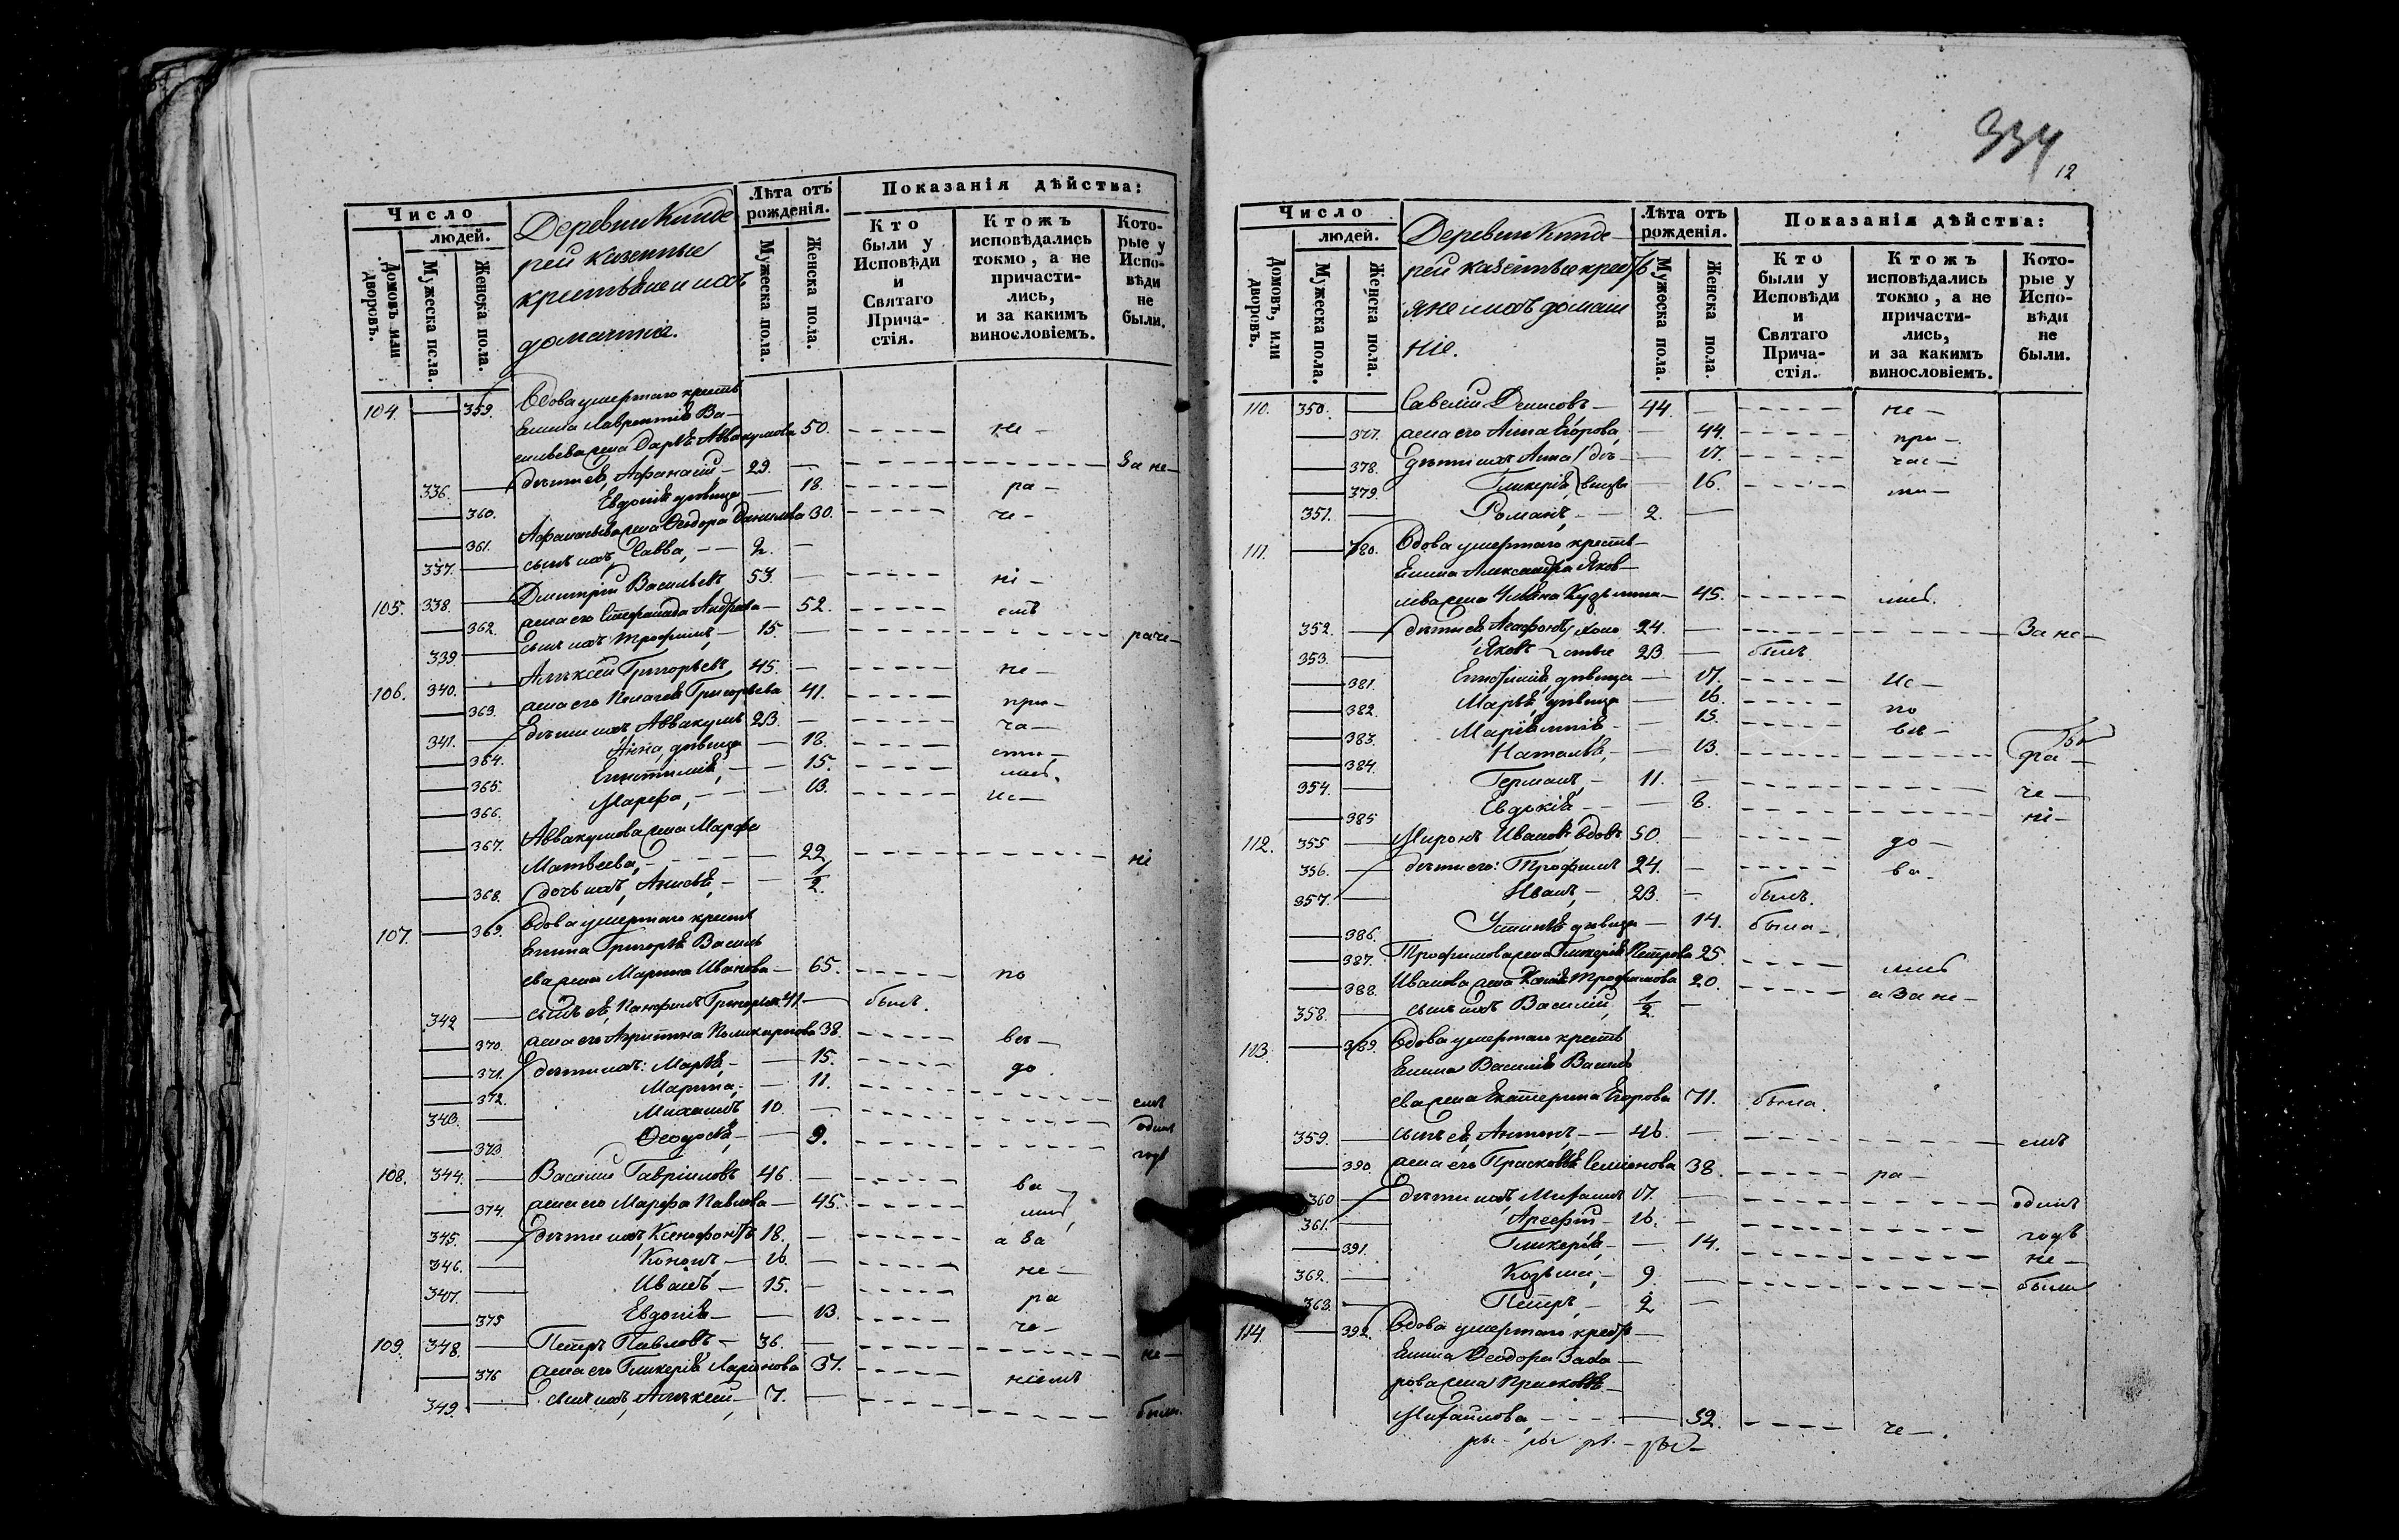 Число
людей.
Домовъ или дворовъ.
Мужеска пола.
Женска пола.
Деревни Кинде
реи казенные
крестьяне и ихъ
домашніе.
Лѣта отъ рожденія.
Мужеска пола.
Женска пола.
Показанія дѣйства:
Кто были у Исповѣди и Святаго Прича- стія.
Ктожъ исповѣдались токмо, а не причасти- лись, и за какимъ винословіемъ.
Кото- рые у Испо- вѣди не были.
104. 359. Вдова умершаго кресть
янина Лаврентія Ва-
сильева жена Дарья Аввакумова 50. не-
336. дѣти ея, Афанасій 29. За не-
360. Евдокія дѣвица 18. ра-
361. Афанасьева жена Ѳеодора Данилова 30. че-
337. сынъ ихъ, Савва, 2.
105. 338. Дмитрій Васильевъ 53. ні-
362. жена его Степанида Андреева 52. емъ
339. сынъ ихъ Трофимъ, 15. раче-
106. 340. Алексѣй Григорьевъ, 45. не-
363. жена его Пелагея Григорьева 41. при-
341. дѣти ихъ Аввакумъ 23. ча-
364. Анна, дѣвица 18. сти-
365. Епистимія, 15. лись.
366. Марфа, 13. Ис-
367. Аввакумова жена Марфа
Матвѣева, 22. ні
368. дочь ихъ, 1/2
107. 369. Вдова умершаго кресть
янина Григорья Василь
ева жена Марина Иванова 65. по
342 сынъ ея, Панфилъ Григорьевъ 41. былъ.
370. жена его Агрипина Поликарпова 38. вѣ-
371. дѣти ихъ: Марья, 15. до
372. Марина, 11. емъ
343. Михаилъ 10. одинъ
373. Ѳеодосія, 9. годъ
108. 344. Василій Гавриловъ 46. ва
374. жена его Марфа Павлова 45. лись
345. дѣти ихъ, Ксенофонтъ 18. а За
346. Кононъ, 16. не-
347. Иванъ, 15. ра
375 Евдокія 13. че-
109. 348. Петръ Павловъ 36. не-
376 жена его Гликерія Ларіонова 37. ніемъ
349. сынъ ихъ, Алексѣй, 7. были.
334
12
Число
людей.
Домовъ, или дворовъ.
Мужеска пола.
Женска пола.
Деревни Кинде-
реи казенные крест
яне и ихъ домаш
ніе.
Лѣта отъ рожденія.
Мужеска пола.
Женска пола.
Показанія дѣйства:
Кто были у Исповѣди и Святаго Прича- стія.
Ктожъ исповѣдались токмо, а не причасти- лись, и за какимъ винословіемъ.
Кото- рые у Испо- вѣди не были.
110. 350. Савелій Денисовъ 44. не-
377. жена его Анна Егорова, 44. при-
378. дѣти ихъ Анна дѣ- 17. час-
379. Гликерія, вицы 16. ти-
351. Романъ, 2.
111. 380. Вдова умершаго кресть-
янина Александра Яков-
лева жена Ульяна Кузьмина 45. лись.
352. дѣти ея Агафонъ, холо 24. За не-
353. Яковъ стые 23. былъ
381. Епистимія, дѣвица 17. Ис-
382. Марья, дѣвица 16. по
383. 15. вѣ-
384. Наталья, 13. ра-
354. Германъ, 11. че-
385 Евдокія 8. ні-
112. 355 Миронъ Ивановъ вдовъ 50. до-
356. дѣти его: Трофимъ 24. ва-
357. Иванъ, 23. былъ.
386. Устинья дѣвица 14. была.
387. Трофимова жена Гликерія Петрова 25. лись
388. Иванова жена Трофимова 20. а За не-
358. сынъ ихъ Василій, 1/2.
113 389. Вдова умершаго кресть
янина Василія Василь
ева жена Екатерина Егорова 71. была.
359. сынъ ея, Антонъ, 46. емъ
390. жена его Прасковья Семенова 38. ра-
360 дѣти ихъ, Михаилъ 17. одинъ
361. Арефій 16. годъ
391. Гликерія, 14. не-
362. Козьма, 9. были
363. Петръ, 2
114. 392. Вдова умершаго крест-
янина Ѳеодора
рова жена Прасковья
Михайлова, 32. че-